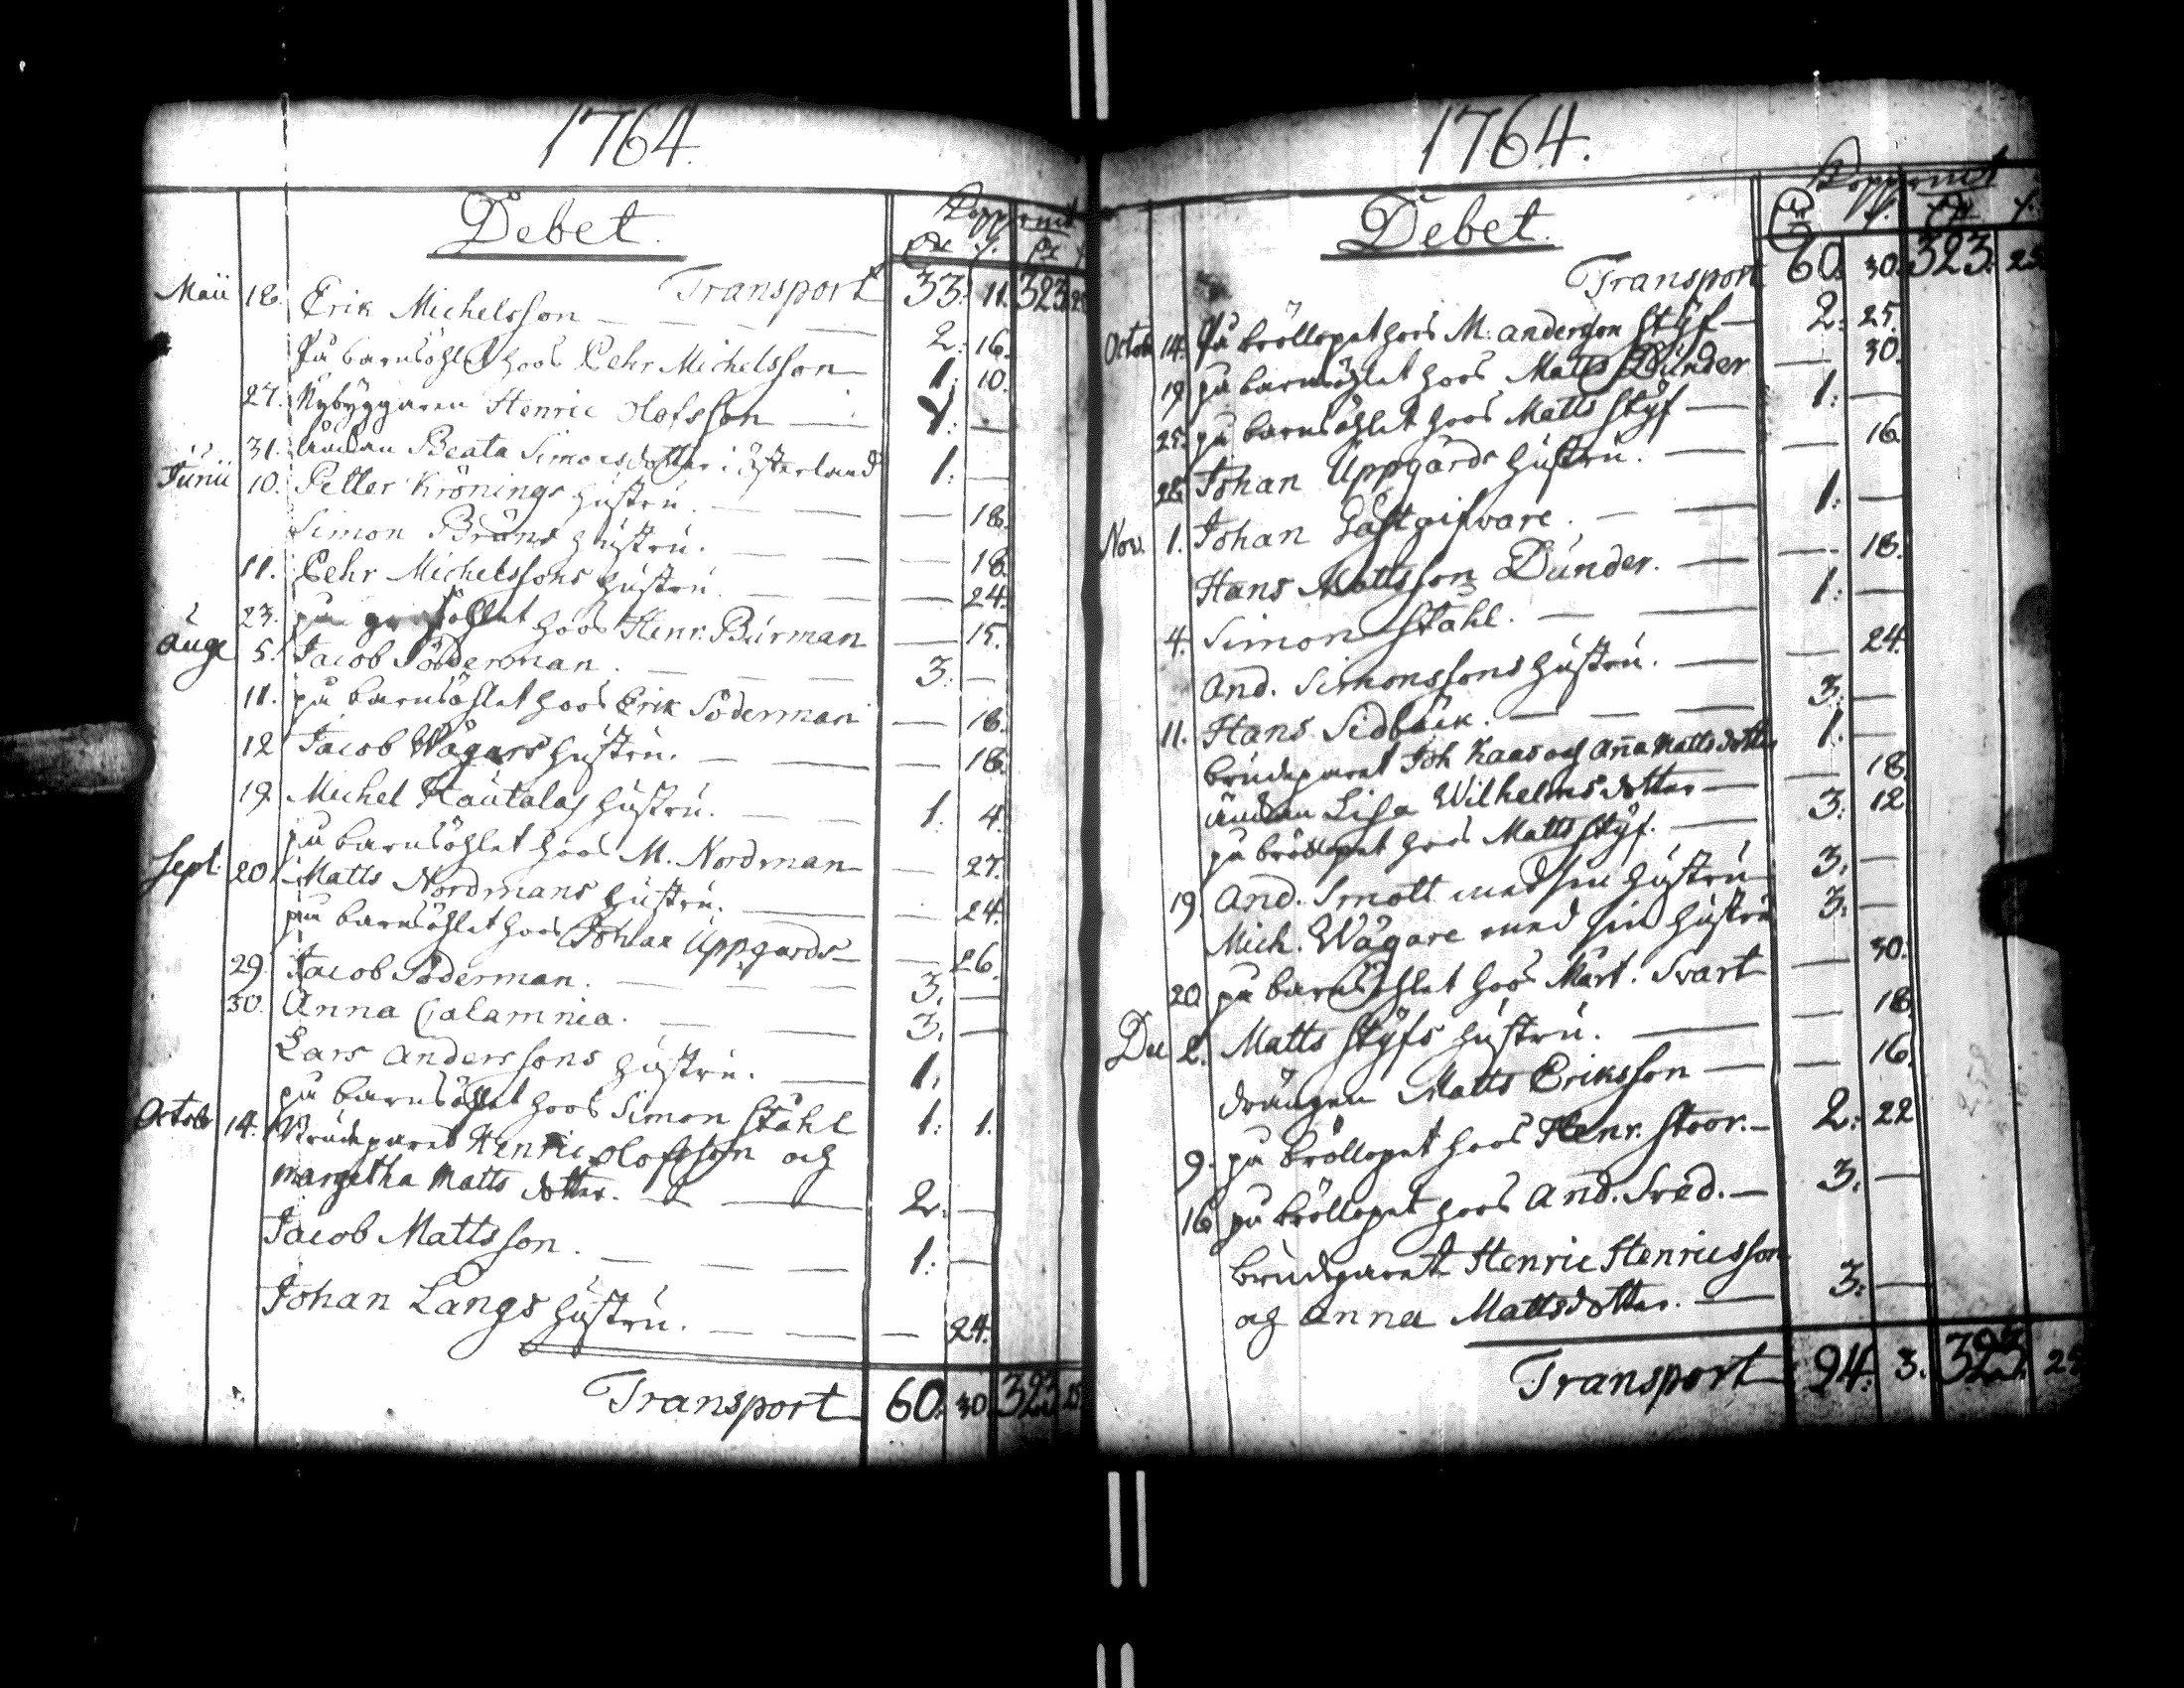 1764.
Debet.
Koppermt
Transport 33. 11. 323
Maii 18. Erik Michelsson — 2. 16.
På barnsöhlet hoos Pehr Michelsson — 1. 10.
27. Nybyggaren Henric Olofsson — 1. —
31. änckan Beata Simonsdotter i Österland 1. —
Junii 10. Petter Krönings hustru. — 18.
Simon Bruns hustru. — 18.
11. Pehr Michelssons hustru — 24.
23. på hoos Henr. Burman — 15.
Aug. 5. Jacob Söderman. — 3. —
11. på barnsöhlet hoos Erik Söderman — 18.
12 Jacob Wägars hustru. — 18.
19. Michel Hautalas hustru. — 1. 4.
på barnsöhlet hoos M. Nordman — 27.
Sept. 20. Matts Nordmans hustru. — 24.
på barnsöhlet hoos Johan Uppgårds — 26.
29. Jacob Söderman. — 3. —
30. Anna Calamnia. — 3. —
Lars Anderssons hustru. — 1.
på barnsöhlet hoos Simon Ståhl 1. 1.
Octob 14. Brudparet Henric Olofsson och
Margetha Matts dotter. — 2. —
Jacob Mattsson. — 1. —
Johan Långs hustru. — 24.
Transport 60. 30. 323 25
1764.
Debet.
Koppermt
Transport 60. 30. 323. 25
Octob 14. På bröllopet hoos M. Anderson Styf — 2. 25.
19. på barnsöhlet hoos Matts Dunder — 30.
25. på barnsöhlet hoos Matts Styf — 1. —
28. Johan Uppgårds hustru. — 16
Nov. 1. Johan Gästgifvare. — 1. —
Hans Mattsson Dunder. — 18.
4. Simon Ståhl. — 1. —
And. Simonssons hustru. — 24.
11. Hans Sidbäck. — 3. —
brudparet Joh Kaas och Anna Mattsdotter 1. —
änckan Lisa Wilhelmsdotter — 18.
på bröllopet hoos Matts Styf. — 3. 12.
19. And. Smott med sin hustru 3. —
Mich. Wägare med sin hustru 3. —
20. på barnsöhlet hoos Mårt. Svart — 30.
Dec 2. Matts Styfs hustru. — 18.
drängen Matts Eriksson — 16.
9. på bröllopet hoos Henr. Stoor. — 2. 22
16. på bröllopet hoos And. Sved. — 3. —
brudparet Henric Henricsson
och Anna Mattsdotter. — 3. —
Transport 94. 3. 323. 25